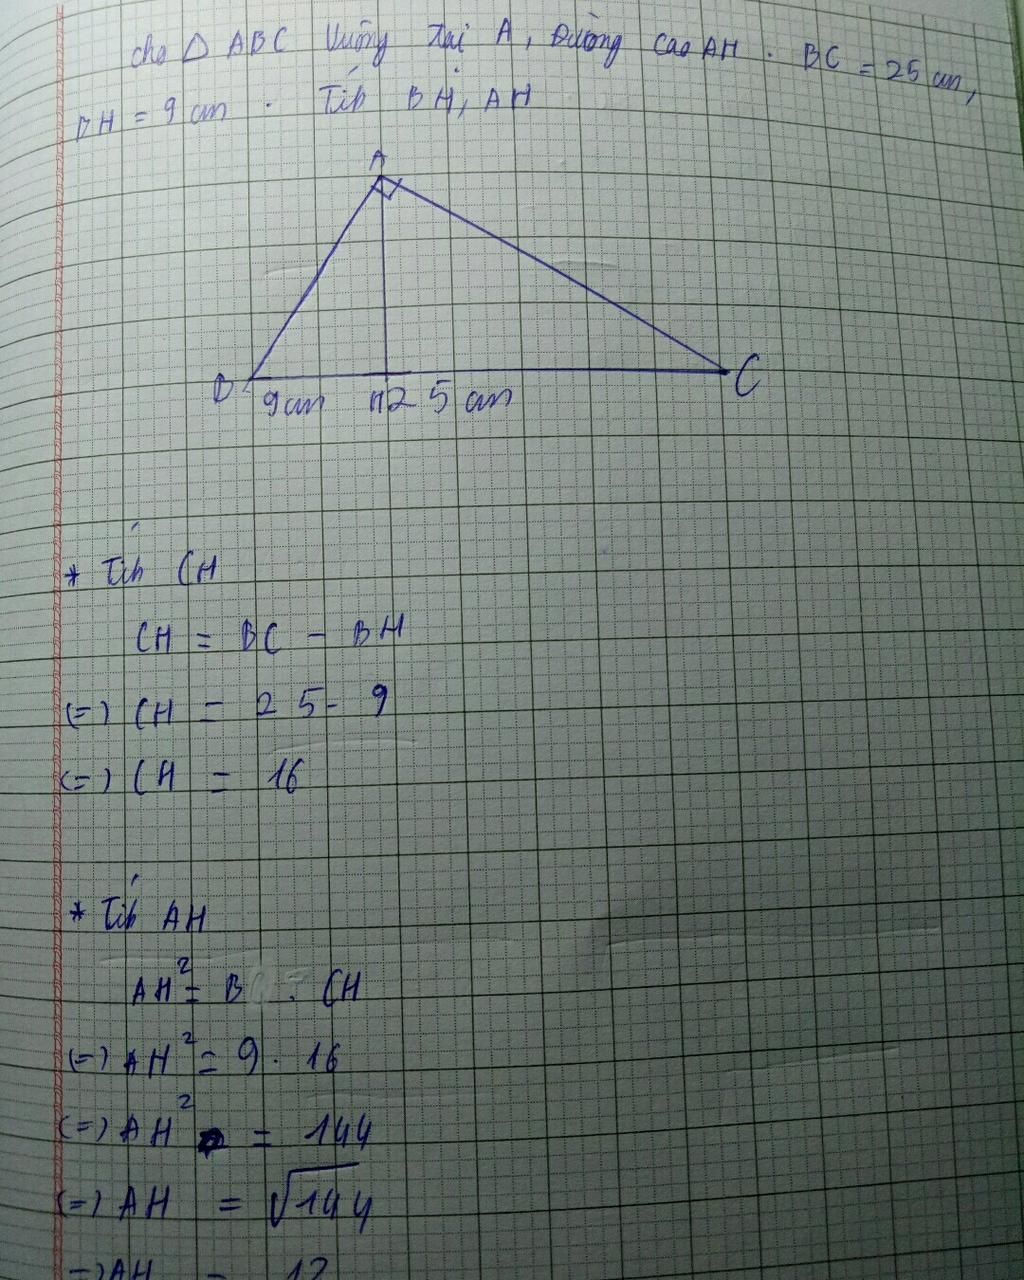 cho △ ABC vuông tại A, Đường cao AH. BC = 25 cm,
BH = 9 cm. Tính BH, AH
A
B
C
9cm H 25 cm
* Tính CH
CH = BC - BH
(=) CH = 25 - 9
(=) CH = 16
* Tính AH
AH² = B . CH
(=) AH² = 9 . 16
(=) AH² = 144
(=) AH = √144
=) AH = 12